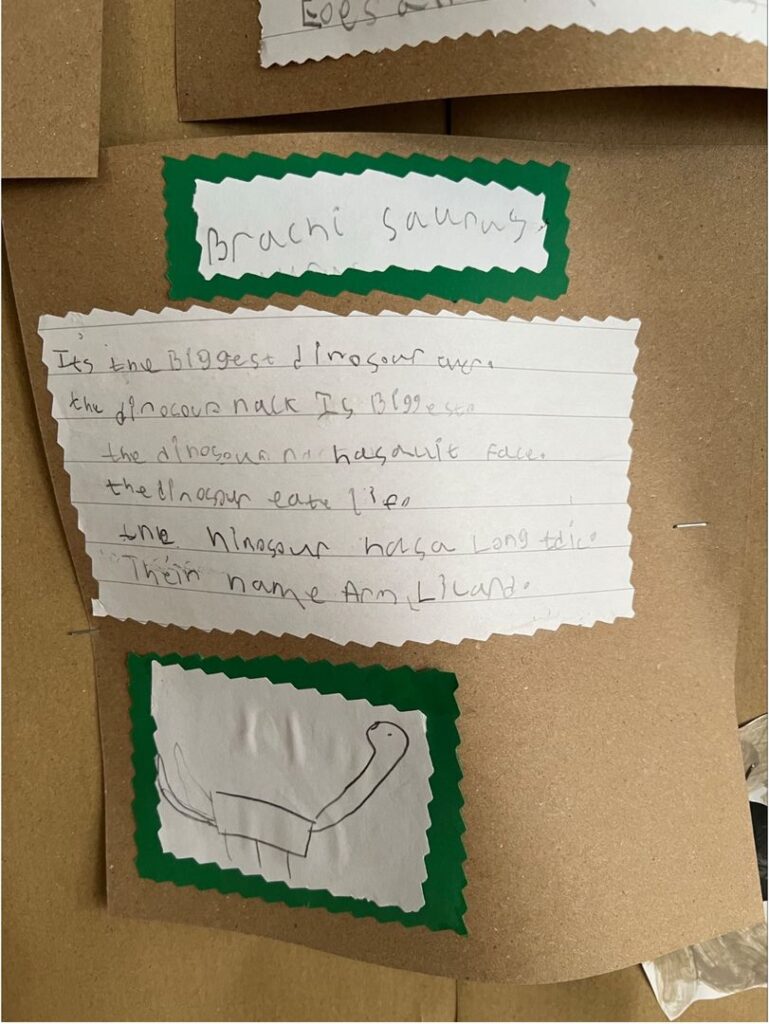 Goes a
Brachi saurus.
Its the Biggest dinosour ever.
the dinosour nack Is Biggest.
the dinosour hasawit Face.
the dinosour eats
the hinosour hasa Long
Their name Arm Lizard.